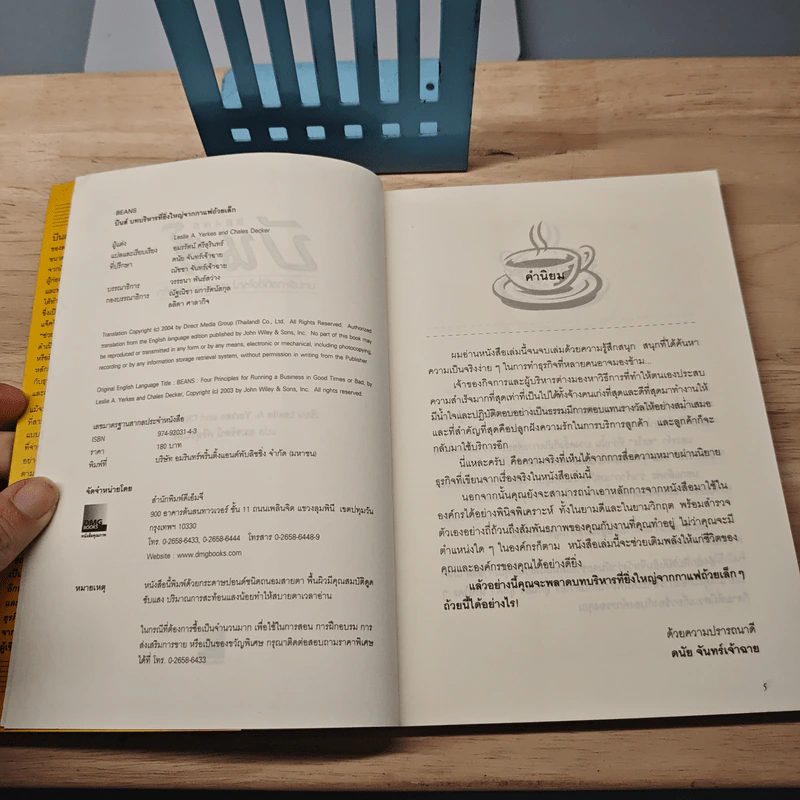 BEANS
บีนส์ บทบริหารที่ยิ่งใหญ่จากกาแฟถ้วยเล็ก
ผู้แต่ง Leslie A. Yerkes and Chales Decker
แปลและเรียบเรียง อมรรัตน์ ศรีสุรินทร์
ที่ปรึกษา ดนัย จันทร์เจ้าฉาย
ณัชชา จันทร์เจ้าฉาย
บรรณาธิการ วรรธนา พันธ์สว่าง
กองบรรณาธิการ ณัฐณิชา มการัตน์สกุล
ลลิตา ศาลากิจ
Translation Copyright (c) 2004 by Direct Media Group (Thailand) Co., Ltd. All Rights Reserved. Authorized
translation from the English language edition published by John Wiley & Sons, Inc. No part of this book may
be reproduced or transmitted in any form or by any means, electronic or mechanical, including photocopying,
recording or by any information storage retrieval system, without permission in writing from the Publisher.
Original English Language Title : BEANS : Four Principles for Running a Business in Good Times or Bad, by
Leslie A. Yerkes and Chales Decker, Copyright (c) 2003 by John Wiley & Sons, Inc. All rights reserved.
เลขมาตรฐานสากลประจำหนังสือ
ISBN 974-92031-4-3
ราคา 180 บาท
พิมพ์ที่ บริษัท อมรินทร์พริ้นติ้งแอนด์พับลิชชิ่ง จำกัด (มหาชน)
จัดจำหน่ายโดย
DMG
BOOKS
หนังสือคุณภาพ
สำนักพิมพ์ดีเอ็มจี
900 อาคารต้นสนทาวเวอร์ ชั้น 11 ถนนเพลินจิต แขวงลุมพินี เขตปทุมวัน
กรุงเทพฯ 10330
โทร. 0-2658-6433, 0-2658-6444 โทรสาร 0-2658-6448-9
Website : www.dmgbooks.com
หมายเหตุ หนังสือนี้พิมพ์ด้วยกระดาษปอนด์ชนิดถนอมสายตา พื้นผิวมีคุณสมบัติดูด
ซับแสง ปริมาณการสะท้อนแสงน้อยทำให้สบายตาเวลาอ่าน
ในกรณีที่ต้องการซื้อเป็นจำนวนมาก เพื่อใช้ในการสอน การฝึกอบรม การ
ส่งเสริมการขาย หรือเป็นของขวัญพิเศษ กรุณาติดต่อสอบถามราคาพิเศษ
ได้ที่ โทร. 0-2658-6433
คำนิยม
ผมอ่านหนังสือเล่มนี้จนจบเล่มด้วยความรู้สึกสนุก สนุกที่ได้ค้นหา
ความเป็นจริงง่าย ๆ ในการทำธุรกิจที่หลายคนอาจมองข้าม...
เจ้าของกิจการและผู้บริหารต่างมองหาวิธีการที่ทำให้ตนเองประสบ
ความสำเร็จมากที่สุดเท่าที่เป็นไปได้ทั้งจ้างคนเก่งที่สุดและดีที่สุดมาทำงานให้
มีน้ำใจและปฏิบัติตอบอย่างเป็นธรรมมีการตอบแทนรางวัลให้อย่างสม่ำเสมอ
และที่สำคัญที่สุดคือปลูกฝังความรักในการบริการลูกค้า และลูกค้าก็จะ
กลับมาใช้บริการอีก
นี่แหละครับ คือความจริงที่เห็นได้จากการสื่อความหมายผ่านนิยาย
ธุรกิจที่เขียนจากเรื่องจริงในหนังสือเล่มนี้
นอกจากนั้นคุณยังจะสามารถนำเอาหลักการจากหนังสือมาใช้ใน
องค์กรได้อย่างพินิจพิเคราะห์ ทั้งในยามดีและในยามวิกฤต พร้อมสำรวจ
ตัวเองอย่างถี่ถ้วนถึงสัมพันธภาพของคุณกับงานที่คุณทำอยู่ ไม่ว่าคุณจะมี
ตำแหน่งใด ๆ ในองค์กรก็ตาม หนังสือเล่มนี้จะช่วยเติมพลังให้แก่ชีวิตของ
คุณและองค์กรของคุณได้อย่างดียิ่ง
แล้วอย่างนี้คุณจะพลาดบทบริหารที่ยิ่งใหญ่จากกาแฟถ้วยเล็ก ๆ
ถ้วยนี้ได้อย่างไร!
ด้วยความปรารถนาดี
ดนัย จันทร์เจ้าฉาย
5